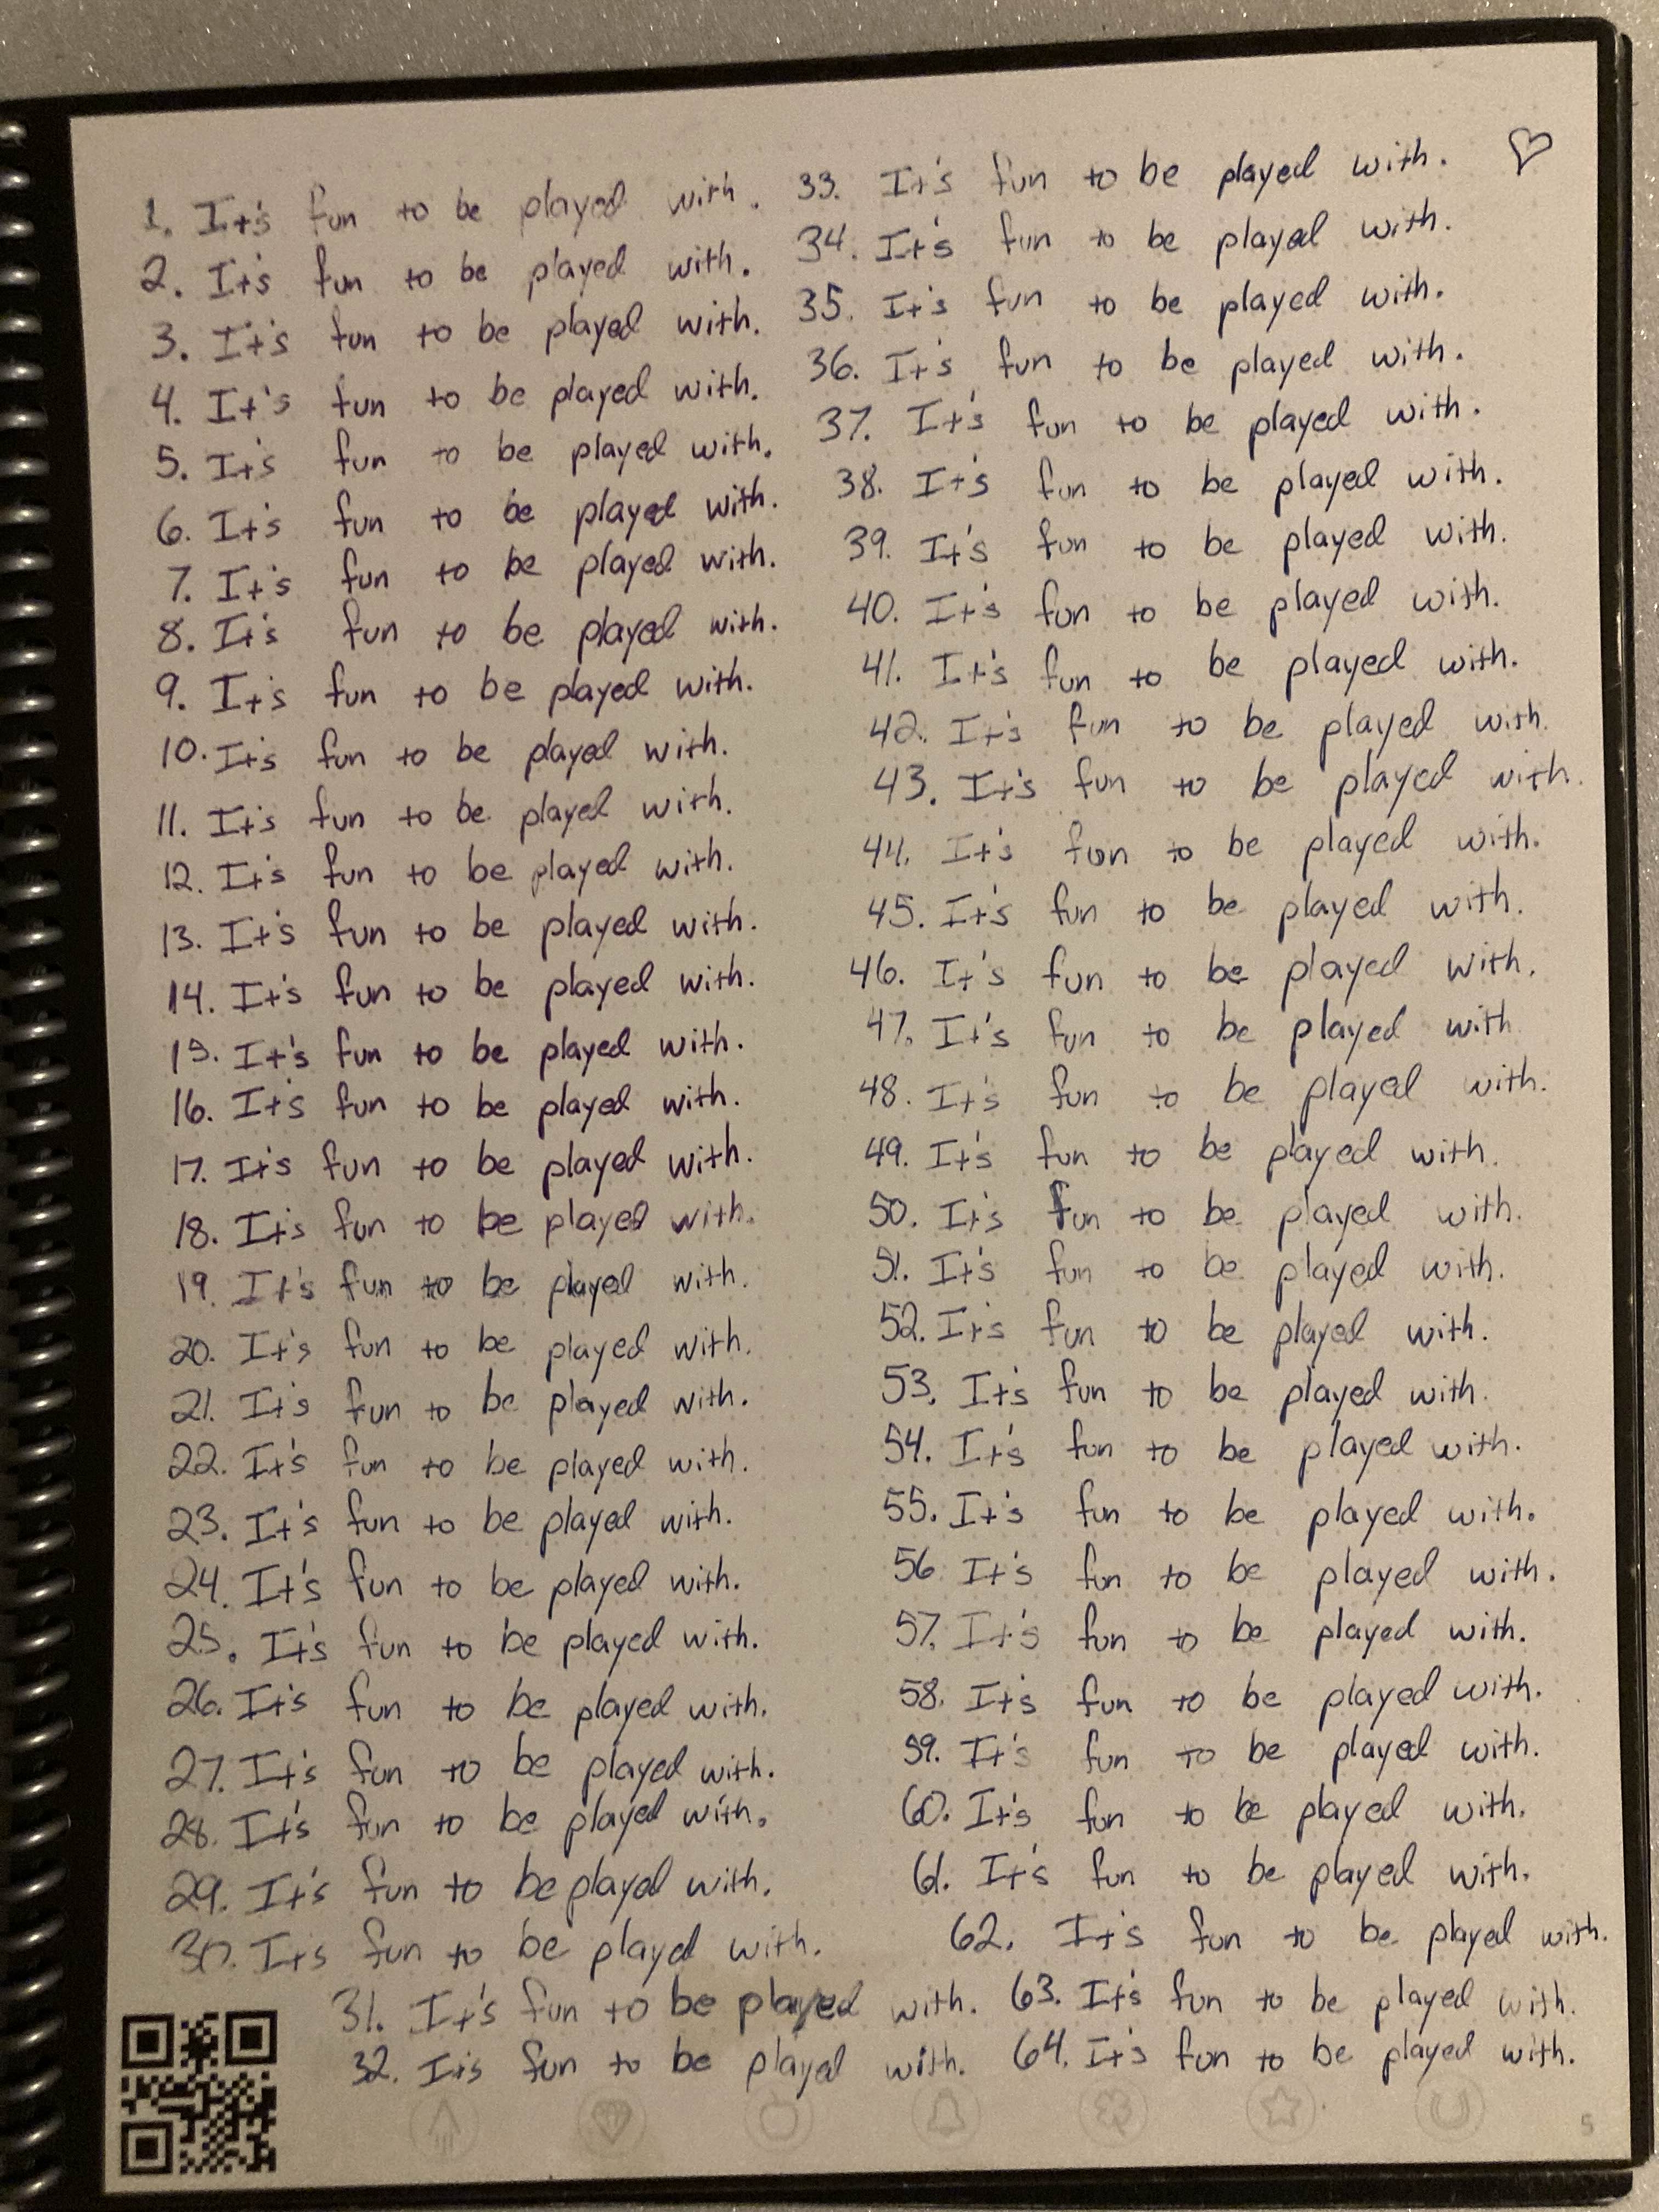 1. It's fun to be played with.
2. It's fun to be played with.
3. It's fun to be played with.
4. It's fun to be played with.
5. It's fun to be played with.
6. It's fun to be played with.
7. It's fun to be played with.
8. It's fun to be played with.
9. It's fun to be played with.
10. It's fun to be played with.
11. It's fun to be played with.
12. It's fun to be played with.
13. It's fun to be played with.
14. It's fun to be played with.
15. It's fun to be played with.
16. It's fun to be played with.
17. It's fun to be played with.
18. It's fun to be played with.
19. It's fun to be played with.
20. It's fun to be played with.
21. It's fun to be played with.
22. It's fun to be played with.
23. It's fun to be played with.
24. It's fun to be played with.
25. It's fun to be played with.
26. It's fun to be played with.
27. It's fun to be played with.
28. It's fun to be played with.
29. It's fun to be played with.
30. It's fun to be played with.
31. It's fun to be played with.
32. It's fun to be played with.
33. It's fun to be played with. ♡
34. It's fun to be played with.
35. It's fun to be played with.
36. It's fun to be played with.
37. It's fun to be played with.
38. It's fun to be played with.
39. It's fun to be played with.
40. It's fun to be played with.
41. It's fun to be played with.
42. It's fun to be played with.
43. It's fun to be played with.
44. It's fun to be played with.
45. It's fun to be played with.
46. It's fun to be played with.
47. It's fun to be played with
48. It's fun to be played with.
49. It's fun to be played with.
50. It's fun to be played with.
51. It's fun to be played with.
52. It's fun to be played with.
53. It's fun to be played with.
54. It's fun to be played with.
55. It's fun to be played with.
56 It's fun to be played with.
57. It's fun to be played with.
58. It's fun to be played with.
59. It's fun to be played with.
60. It's fun to be played with.
61. It's fun to be played with.
62. It's fun to be played with.
63. It's fun to be played with.
64. It's fun to be played with.
5